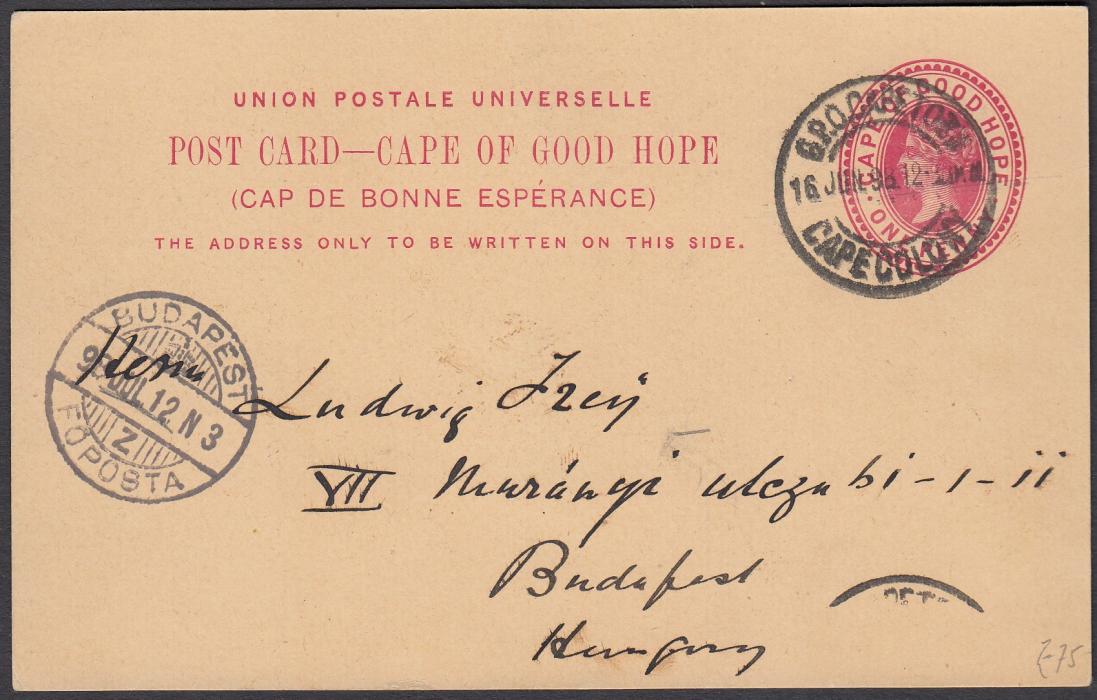 UNION POSTALE UNIVERSELLE
POST CARD—CAPE OF GOOD HOPE
(CAP DE BONNE ESPÉRANCE)
THE ADDRESS ONLY TO BE WRITTEN ON THIS SIDE.
CAPE OF GOOD HOPE
ONE PENNY
G.P.O. CAPE TOWN
16 JUN 98 12
CAPE COLONY
BUDAPEST
98 JUL 12 N 3
Z
FŐPOSTA
Herrn
Ludwig
VII Murányi utcza 51-1-11
Budapest
Hungary
£75-